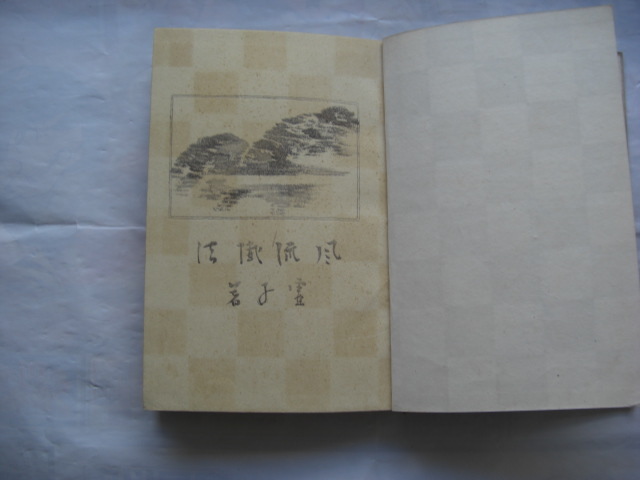 風流懺法
虚子著